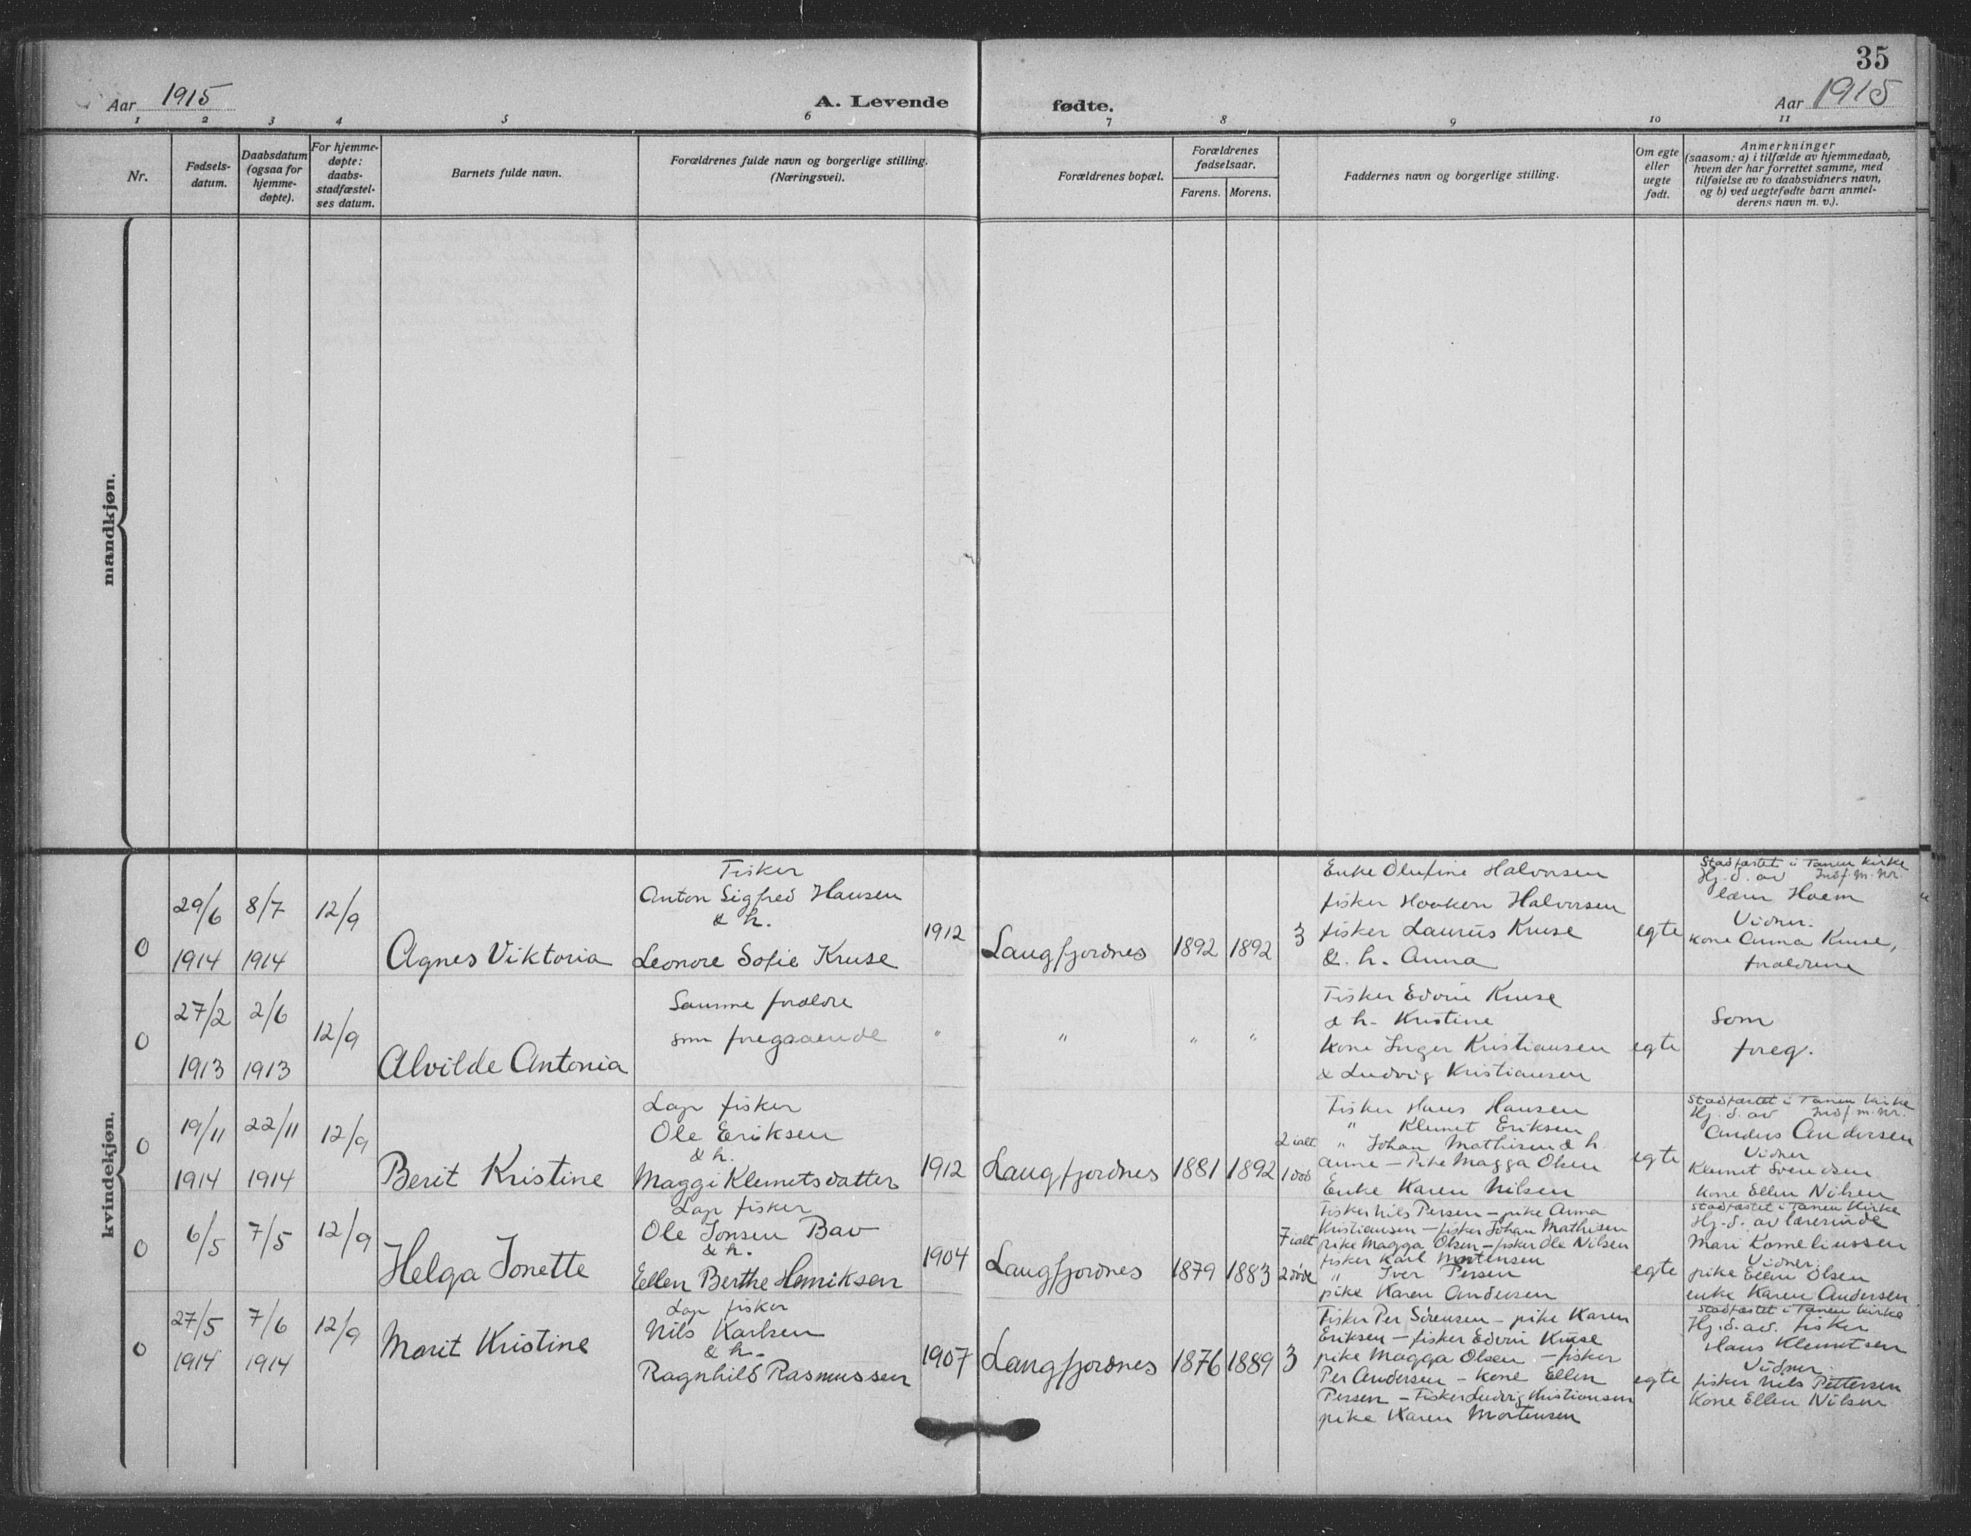 35
Aar 1915
A. Levende
fødte.
Aar 1915
1 2 3 4 5 6 7 8 9 10 11
Nr.
Fødsels-
datum.
Daabsdatum
(ogsaa for
hjemme-
døpte).
For hjemme-
døpte:
daabs-
stadfæstel-
ses datum.
Barnets fulde navn.
Forældrenes fulde navn og borgerlige stilling.
(Næringsvei).
Forældrenes bopæl.
Forældrenes
fødselsaar.
Farens. Morens.
Faddernes navn og borgerlige stilling.
Om egte
eller
uegte
født.
Anmerkninger
(saasom: a) i tilfælde av hjemmedaab,
hvem der har forrettet samme, med
tilføielse av to daabsvidners navn,
og b) ved uegtefødte barn anmel-
derens navn m. v.).
mandkjøn.
kvindekjøn.
0
29/6
1914
8/7
1914
12/9
Agnes Viktoria
Fisker
Anton Sigfred Hansen
& h.
Leonore Sofie Kruse
1912
Langfjordnes
1892
1892
3
Enke Olufine Halvorsen
fisker Haakon Halvorsen
fisker Laurus Kruse
& h. Anna
egte
Stadfæstet i Tanen kirke
Hj. d. av Indf. m. Nr.
lærer Hoem
Vidner.
kone Anna Kruse,
forældrene
0
27/2
1913
2/6
1913
12/9
Alvilde Antonia
Samme forældre
som foregaaende
"
"
"
"
Fisker Edvin Kruse
& h. Kristine
kone Inger Kristiansen
& Ludvig Kristiansen
egte
Som
foreg.
0
19/11
1914
22/11
1914
12/9
Berit Kristine
Lap fisker
Ole Eriksen
& h.
Maggi Klemetsdatter
1912
Langfjordnes
1881
1892
2 ialt
1 død
Fisker Hans Hansen
" Klemet Eriksen
" Johan Mathisen & h.
Anne — Pike Magga Olsen
Enke Karen Nilsen
egte
Stadfæstet i Tanen kirke
Hj. d. av Indf. m. Nr.
Anders Andersen
Vidner
Klemet Svendsen
kone Ellen Nilsen
0
6/5
7/5
12/9
Helga Jonette
Lap fisker
Ole Jonsen Bav
& h.
Ellen Berthe Henriksen
1904
Langfjordnes
1879
1883
7 ialt
2 døde
Fisker Nils Persen — pike Anna
Kristiansen — fisker Johan Mathisen
pike Magga Olsen — fisker Ole Nilsen
fisker Karl Mortensen
" Iver Persen
pike Karen Andersen
egte
Stadfæstet i Tanen Kirke
Hj. d. av lærerinde
Mari Korneliussen
Vidner:
pike Ellen Olsen
enke Karen Andersen
0
27/5
1914
7/6
1914
12/9
Marit Kristine
Lap fisker
Nils Karlsen
& h.
Ragnhild Rasmussen
1907
Langfjordnes
1876
1889
3
Fisker Per Sørensen — pike Karen
Eriksen — fisker Edvin Kruse
pike Magga Olsen — fisker
Per Andersen — kone Ellen
Persen — Fisker Ludvig Kristiansen
pike Karen Mortensen
egte
Stadfæstet i Tanen kirke
Hj. d. av. fisker
Hans Klemetsen
Vidner
fisker Nils Pettersen
Kone Ellen Nilsen